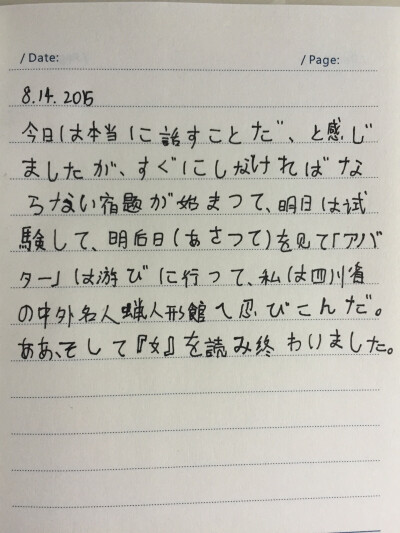 / Date: / Page:
8.14.2015
今日は本当に話すことだ、と感じ
ましたが、すぐにしなければな
らない宿題が始まつて、明日は试
験して、明后日(あさつて)を见て「アバ
ター」は游びに行って、私は四川省
の中外名人蝋人形館へ忍びこんだ。
ああ、そして『女』を読み終わりました。